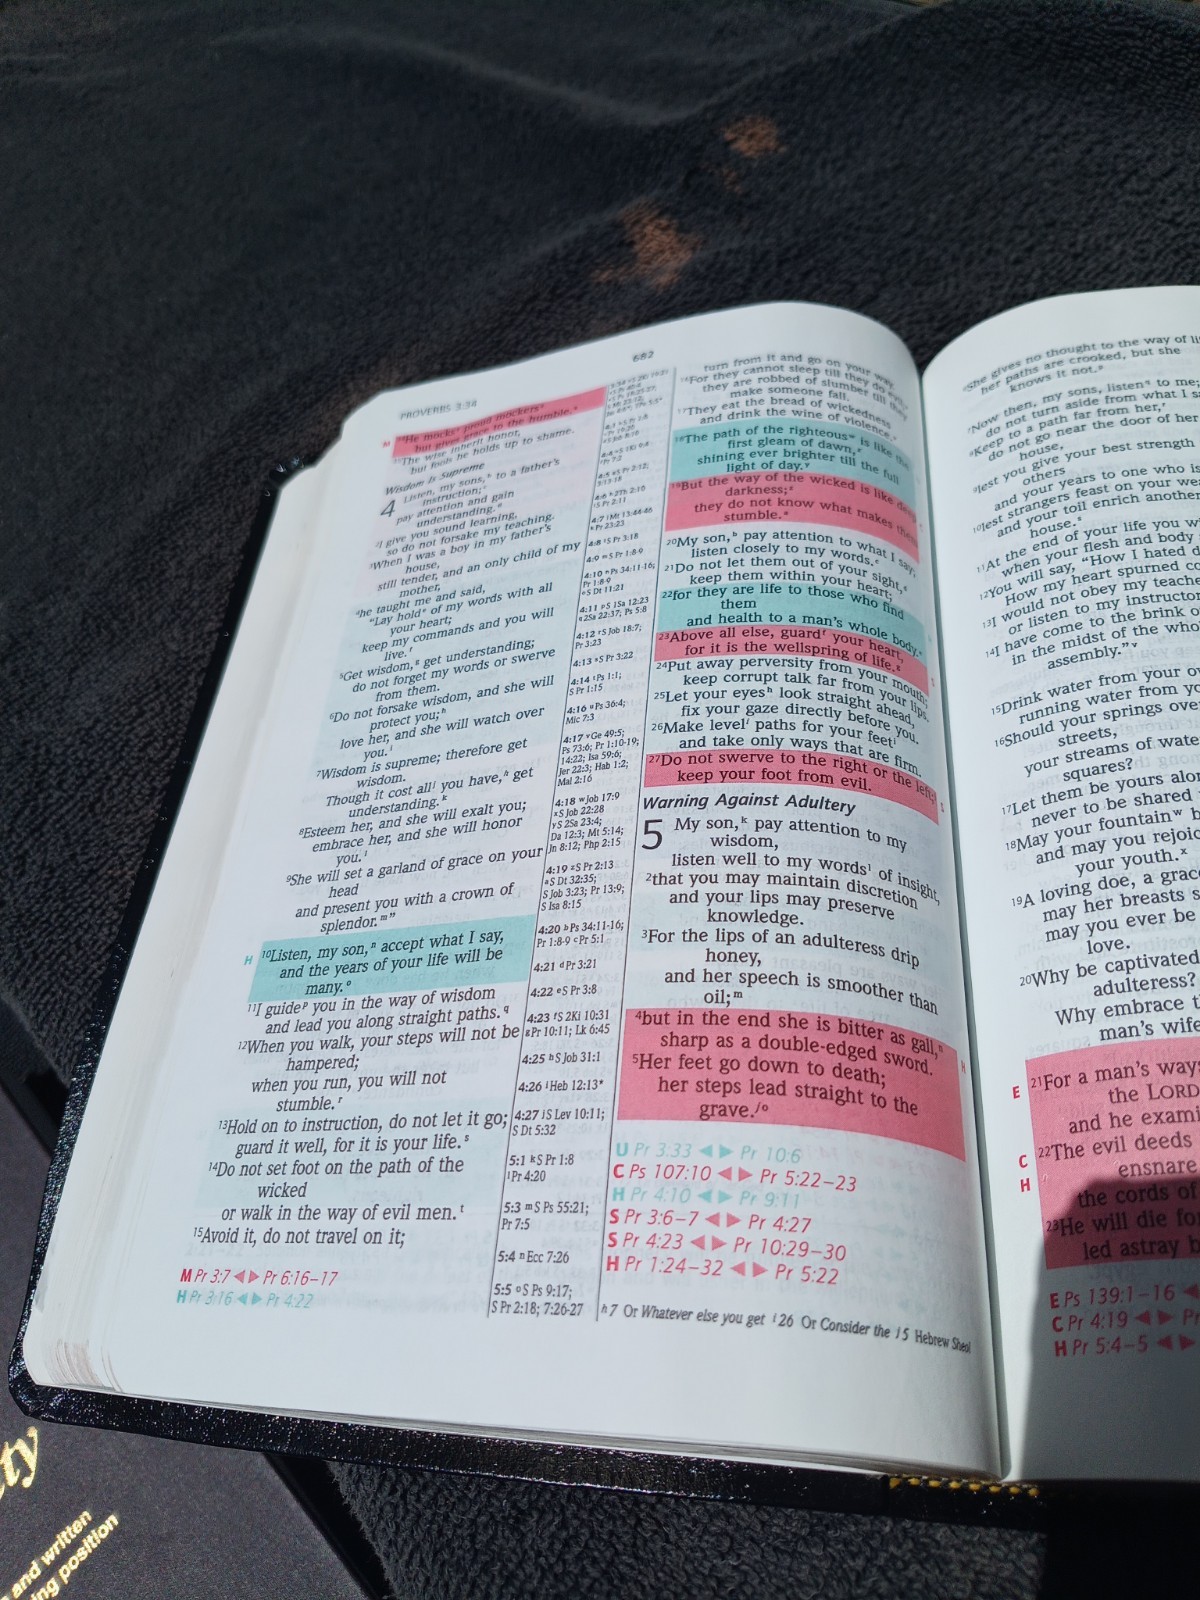 682
PROVERBS 3:34
M
34He mocks proud mockers
but gives grace to the humble.
35The wise inherit honor,
but fools he holds up to shame.
Wisdom Is Supreme
4 Listen, my sons, to a father's
instruction;
pay attention and gain
understanding.
2I give you sound learning,
so do not forsake my teaching.
3When I was a boy in my father's
house,
still tender, and an only child of my
mother,
4he taught me and said,
"Lay hold of my words with all
your heart;
keep my commands and you will
live.r
5Get wisdom,g get understanding;
do not forget my words or swerve
from them.
6Do not forsake wisdom, and she will
protect you;h
love her, and she will watch over
you.i
7Wisdom is supreme; therefore get
wisdom.
Though it cost allj you have,h get
understanding.k
8Esteem her, and she will exalt you;
embrace her, and she will honor
you.l
9She will set a garland of grace on your
head
and present you with a crown of
splendor.m"
H
10Listen, my son,n accept what I say,
and the years of your life will be
many.o
11I guidep you in the way of wisdom
and lead you along straight paths.q
12When you walk, your steps will not be
hampered;
when you run, you will not
stumble.r
13Hold on to instruction, do not let it go;
guard it well, for it is your life.s
14Do not set foot on the path of the
wicked
or walk in the way of evil men.t
15Avoid it, do not travel on it;
M Pr 3:7 ◀ ▶ Pr 6:16–17
H Pr 3:16 ◀ ▶ Pr 4:22
4:8 S Pr 3:18
4:9 m S Pr 1:8-9
4:10 n Ps 34:11-16;
Pr 1:8-9
o S Dt 11:21
4:11 p S 1Sa 12:23
q 2Sa 22:37; Ps 5:8
4:12 r S Job 18:7;
Pr 3:23
4:13 s S Pr 3:22
4:14 t Ps 1:1;
S Pr 1:15
4:16 u Ps 36:4;
Mic 7:3
4:17 v Ge 49:5;
Ps 73:6; Pr 1:10-19;
14:22; Isa 59:6;
Jer 22:3; Hab 1:2;
Mal 2:16
4:18 w Job 17:9
x S Job 22:28
y S 2Sa 23:4;
Da 12:3; Mt 5:14;
Jn 8:12; Php 2:15
4:19 z S Pr 2:13
a S Dt 32:35;
S Job 3:23; Pr 13:9;
S Isa 8:15
4:20 b Ps 34:11-16;
Pr 1:8-9 c Pr 5:1
4:21 d Pr 3:21
4:22 e S Pr 3:8
4:23 f S 2Ki 10:31
g Pr 10:11; Lk 6:45
4:25 h S Job 31:1
4:26 i Heb 12:13*
4:27 j S Lev 10:11;
S Dt 5:32
5:1 k S Pr 1:8
l Pr 4:20
5:3 m S Ps 55:21;
Pr 7:5
5:4 n Ecc 7:26
5:5 o S Ps 9:17;
S Pr 2:18; 7:26-27
turn from it and go on your way.
16For they cannot sleep till they do evil;
they are robbed of slumber till they
make someone fall.
17They eat the bread of wickedness
and drink the wine of violence.
18The path of the righteousw is like the
first gleam of dawn,x
shining ever brighter till the full
light of day.y
19But the way of the wicked is like deep
darkness;z
they do not know what makes them
stumble.a
20My son,b pay attention to what I say;
listen closely to my words.c
21Do not let them out of your sight,d
keep them within your heart;
22for they are life to those who find
them
and health to a man's whole body.e
23Above all else, guardf your heart,
for it is the wellspring of life.g
S
24Put away perversity from your mouth;
keep corrupt talk far from your lips.
25Let your eyesh look straight ahead,
fix your gaze directly before you.
26Make leveli paths for your feeti
and take only ways that are firm.
27Do not swerve to the right or the left;j
keep your foot from evil.
S
Warning Against Adultery
5 My son,k pay attention to my
wisdom,
listen well to my wordsl of insight,
2that you may maintain discretion
and your lips may preserve
knowledge.
3For the lips of an adulteress drip
honey,
and her speech is smoother than
oil;m
4but in the end she is bitter as gall,n
sharp as a double-edged sword.
H
5Her feet go down to death;
her steps lead straight to the
grave.jo
U Pr 3:33 ◀ ▶ Pr 10:6
C Ps 107:10 ◀ ▶ Pr 5:22–23
H Pr 4:10 ◀ ▶ Pr 9:11
S Pr 3:6–7 ◀ ▶ Pr 4:27
S Pr 4:23 ◀ ▶ Pr 10:29–30
H Pr 1:24–32 ◀ ▶ Pr 5:22
h 7 Or Whatever else you get i 26 Or Consider the j 5 Hebrew Sheol
6She gives no thought to the way of
her paths are crooked, but she
knows it not.
7Now then, my sons, listen to me;
do not turn aside from what I
8Keep to a path far from her,
do not go near the door of her
house,
9lest you give your best strength
others
and your years to one who is
10lest strangers feast on your
and your toil enrich another
house.s
11At the end of your life you
when your flesh and body
12You will say, "How I hated
How my heart spurned
13I would not obey my
or listen to my
14I have come to the brink
in the midst of the
assembly."v
15Drink water from your
running water from
16Should your springs
streets,
your streams of
squares?
17Let them be yours
never to be shared
18May your fountainw
and may you
your youth.x
19A loving doe, a
may her breasts
may you ever be
love.
20Why be captivated
adulteress?
Why embrace
man's wife
E
21For a man's ways
the LORD
and he
C
H
22The evil deeds
ensnare
the cords of
23He will die
led astray
E Ps 139:1–16 ◀
C Pr 4:19 ◀ ▶
H Pr 5:4–5 ◀ ▶
ty
and written
position